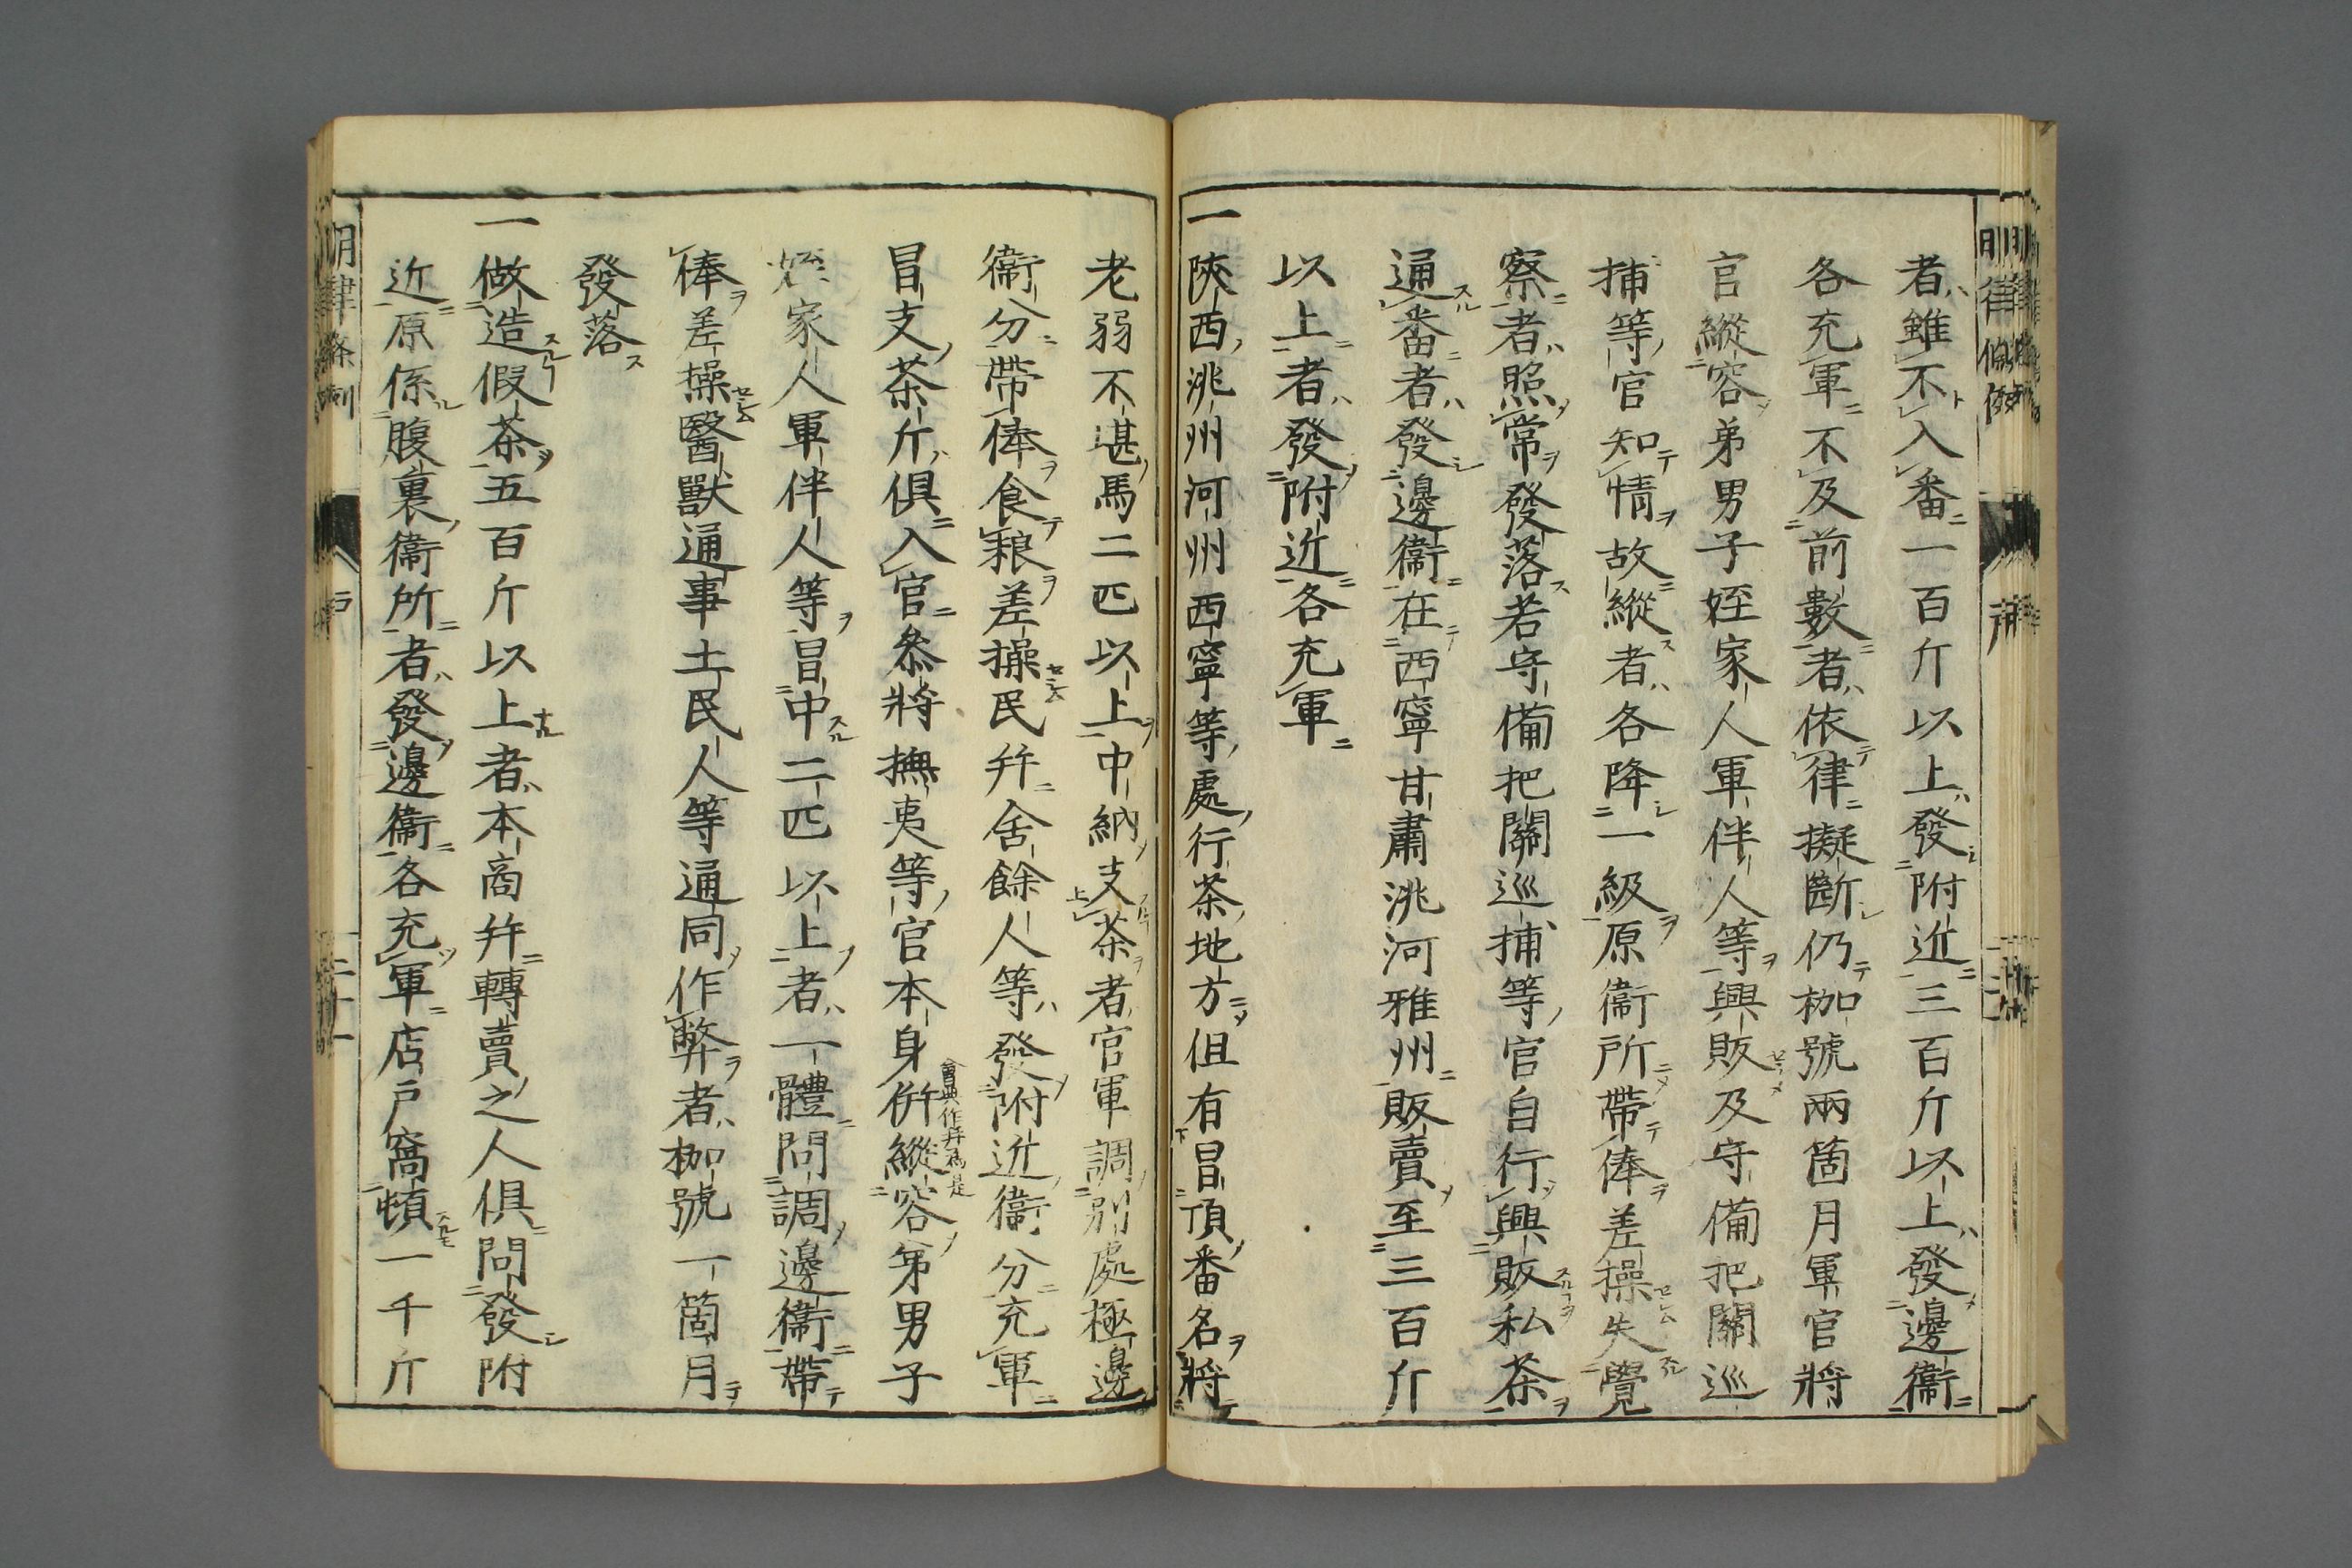 者雖不入番一百斤以上發附近三百斤以上發邊衞
各充軍不及前數者依律擬斷仍枷號兩箇月軍官將
官縱容弟男子姪家人軍伴人等興販及守備把關巡
捕等官知情故縱者各降一級原衞所帶俸差操失覺
察者照常發落若守備把關巡捕等官自行興販私茶
通番者發邊衞在西寧甘肅洮河雅州販賣至三百斤
以上者發附近各充軍
一陝西洮州河州西寧等處行茶地方但有冒頂番名將
老弱不堪馬二匹以上中納支茶者官軍調別處極邊
衞分帶俸食粮差操民幷舍餘人等發附近衞分充軍
冒支茶斤俱入官叅將撫夷等官本身併縱容弟男子
會典作幷爲是
姪家人軍伴人等冒中二匹以上者一體問調邊衞帶
俸差操醫獸通事土民人等通同作弊者枷號一箇月
發落
一做造假茶五百斤以上者本商幷轉賣之人俱問發附
近原係腹裏衞所者發邊衞各充軍店戶窩頓一千斤
明律條例
戶
二十一